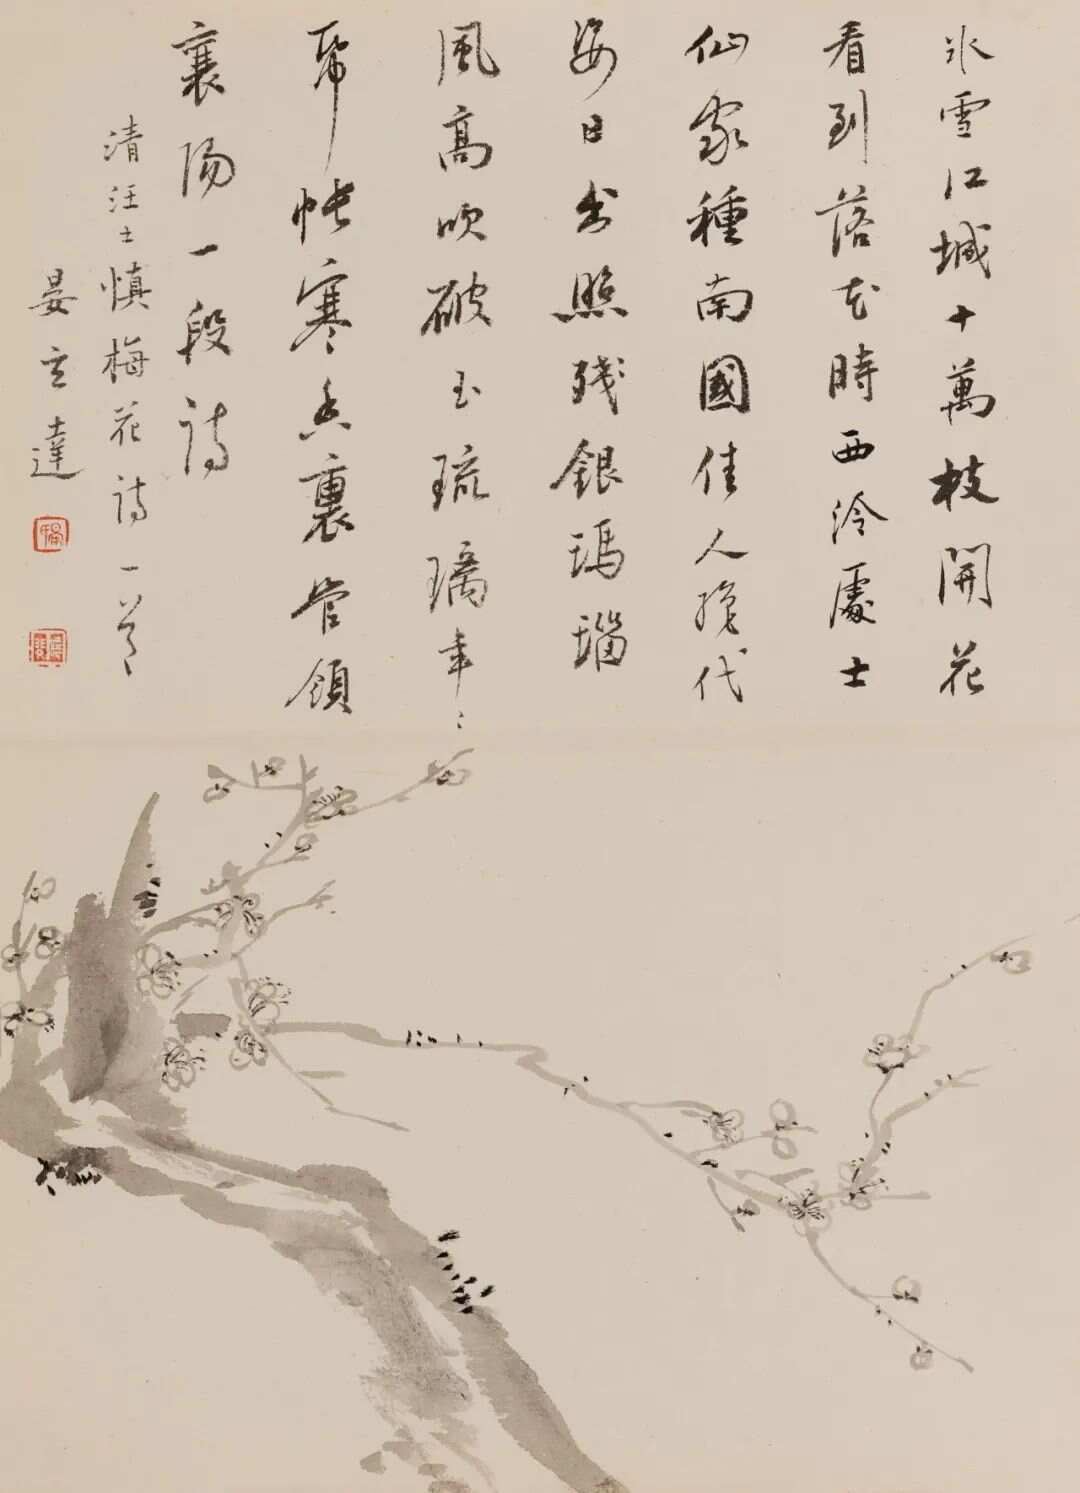 冰雪江城十萬枝開花
看到落花時西泠處士
仙家種南國佳人絕代
姿日出照殘銀瑪瑙
風高吹破玉琉璃年〻
帋帳寒香裏管領
襄陽一段詩
清汪士慎梅花詩一首
晏立達